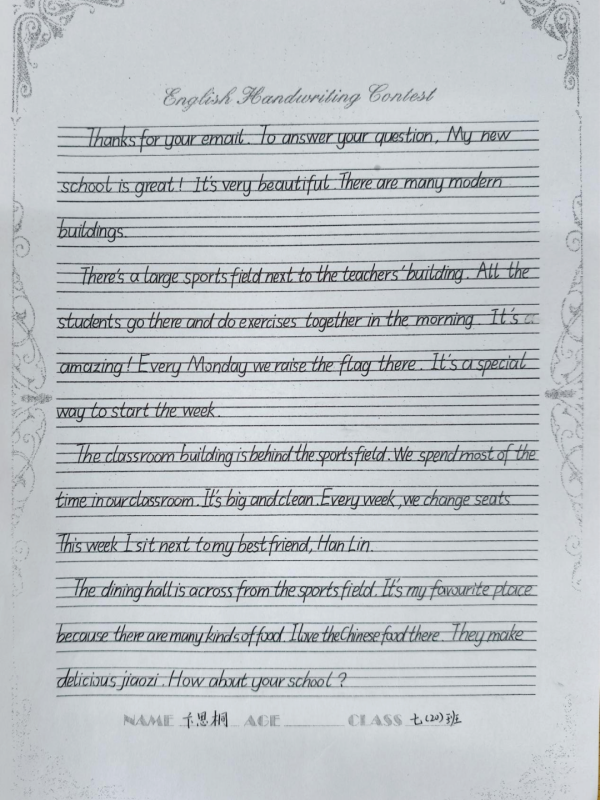 English Handwriting Contest
Thanks for your email. To answer your question, My new
school is great! It's very beautiful. There are many modern
buildings.
There's a large sports field next to the teachers' building. All the
students go there and do exercises together in the morning. It's a
amazing! Every Monday we raise the flag there. It's a special
way to start the week.
The classroom building is behind the sports field. We spend most of the
time in our classroom. It's big and clean. Every week, we change seats
This week I sit next to my best friend, Han Lin.
The dining hall is across from the sports field. It's my favourite place
because there are many kinds of food. I love the Chinese food there. They make
delicious jiaozi. How about your school?
NAME 卞思桐 AGE CLASS 七(20)班